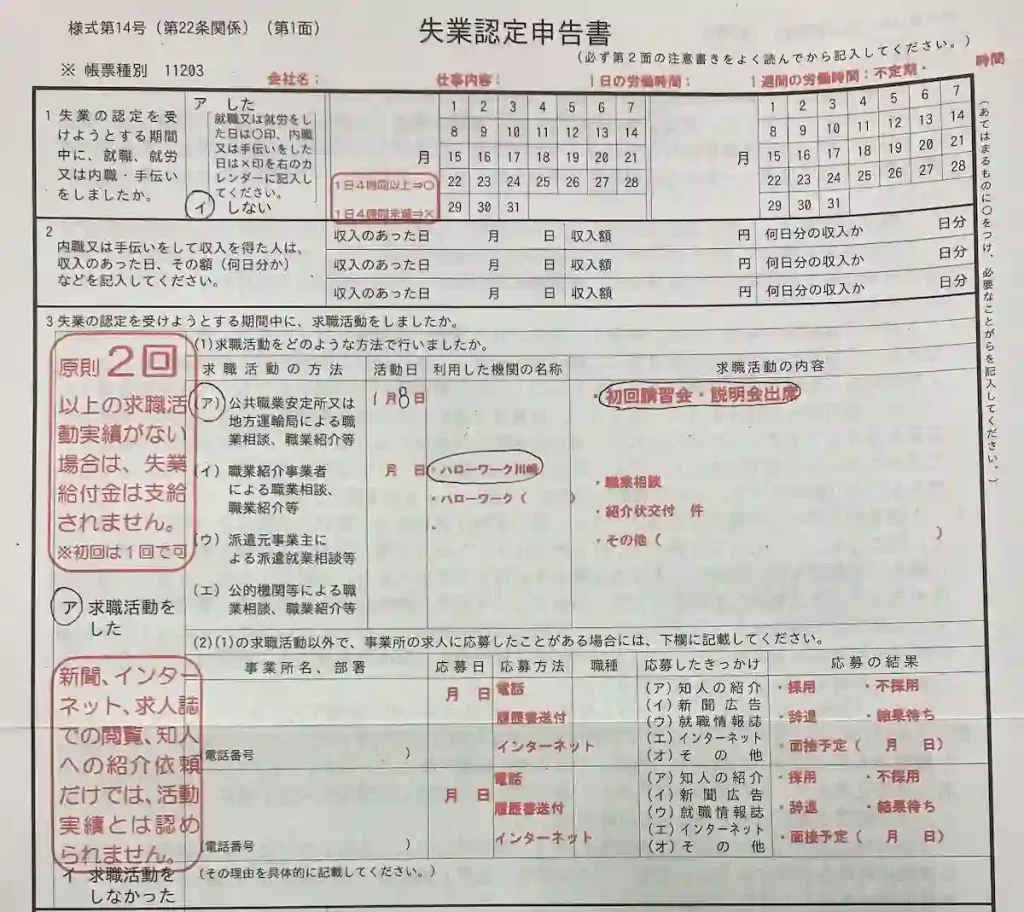 様式第14号（第22条関係）（第1面）
失業認定申告書
（必ず第２面の注意書きをよく読んでから記入してください。）
※ 帳票種別 11203
会社名： 仕事内容： 1日の労働時間： 1週間の労働時間：不定期・ 時間
1 失業の認定を受
けようとする期間
中に、就職、就労
又は内職・手伝い
をしましたか。
ア した
就職又は就労をし
た日は○印、内職
又は手伝いをした
日は×印を右のカ
レンダーに記入し
てください。
イ しない
1日4時間以上⇒○
1日4時間未満⇒×
月
1 2 3 4 5 6 7
8 9 10 11 12 13 14
15 16 17 18 19 20 21
22 23 24 25 26 27 28
29 30 31
月
1 2 3 4 5 6 7
8 9 10 11 12 13 14
15 16 17 18 19 20 21
22 23 24 25 26 27 28
29 30 31
（あてはまるものに○をつけ、必要なことがらを記入してください。）
2
内職又は手伝いをして収入を得た人は、
収入のあった日、その額（何日分か）
などを記入してください。
収入のあった日 月 日 収入額 円 何日分の収入か 日分
収入のあった日 月 日 収入額 円 何日分の収入か 日分
収入のあった日 月 日 収入額 円 何日分の収入か 日分
3 失業の認定を受けようとする期間中に、求職活動をしましたか。
原則２回
以上の求職活
動実績がない
場合は、失業
給付金は支給
されません。
※初回は１回で可
ア 求職活動を
した
(1)求職活動をどのような方法で行いましたか。
求職活動の方法 活動日 利用した機関の名称 求職活動の内容
（ア）公共職業安定所又は
地方運輸局による職
業相談、職業紹介等
1月8日
・初回講習会・説明会出席
（イ）職業紹介事業者
による職業相談、
職業紹介等
月 日
・ハローワーク川崎
・ハローワーク（ ）
・職業相談
・紹介状交付 件
・その他（ ）
（ウ）派遣元事業主に
よる派遣就業相談等
（エ）公的機関等による職
業相談、職業紹介等
(2)(1)の求職活動以外で、事業所の求人に応募したことがある場合には、下欄に記載してください。
事業所名、部署 応募日 応募方法 職種 応募したきっかけ 応募の結果
新聞、インター
ネット、求人誌
での閲覧、知人
への紹介依頼
だけでは、活動
実績とは認め
られません。
（電話番号 ）
月 日
電話
履歴書送付
インターネット
（ア）知人の紹介
（イ）新聞広告
（ウ）就職情報誌
（エ）インターネット
（オ）その他
・採用 ・不採用
・辞退 ・結果待ち
・面接予定（ 月 日）
（電話番号 ）
月 日
電話
履歴書送付
インターネット
（ア）知人の紹介
（イ）新聞広告
（ウ）就職情報誌
（エ）インターネット
（オ）その他
・採用 ・不採用
・辞退 ・結果待ち
・面接予定（ 月 日）
イ 求職活動を
しなかった
（その理由を具体的に記載してください。）